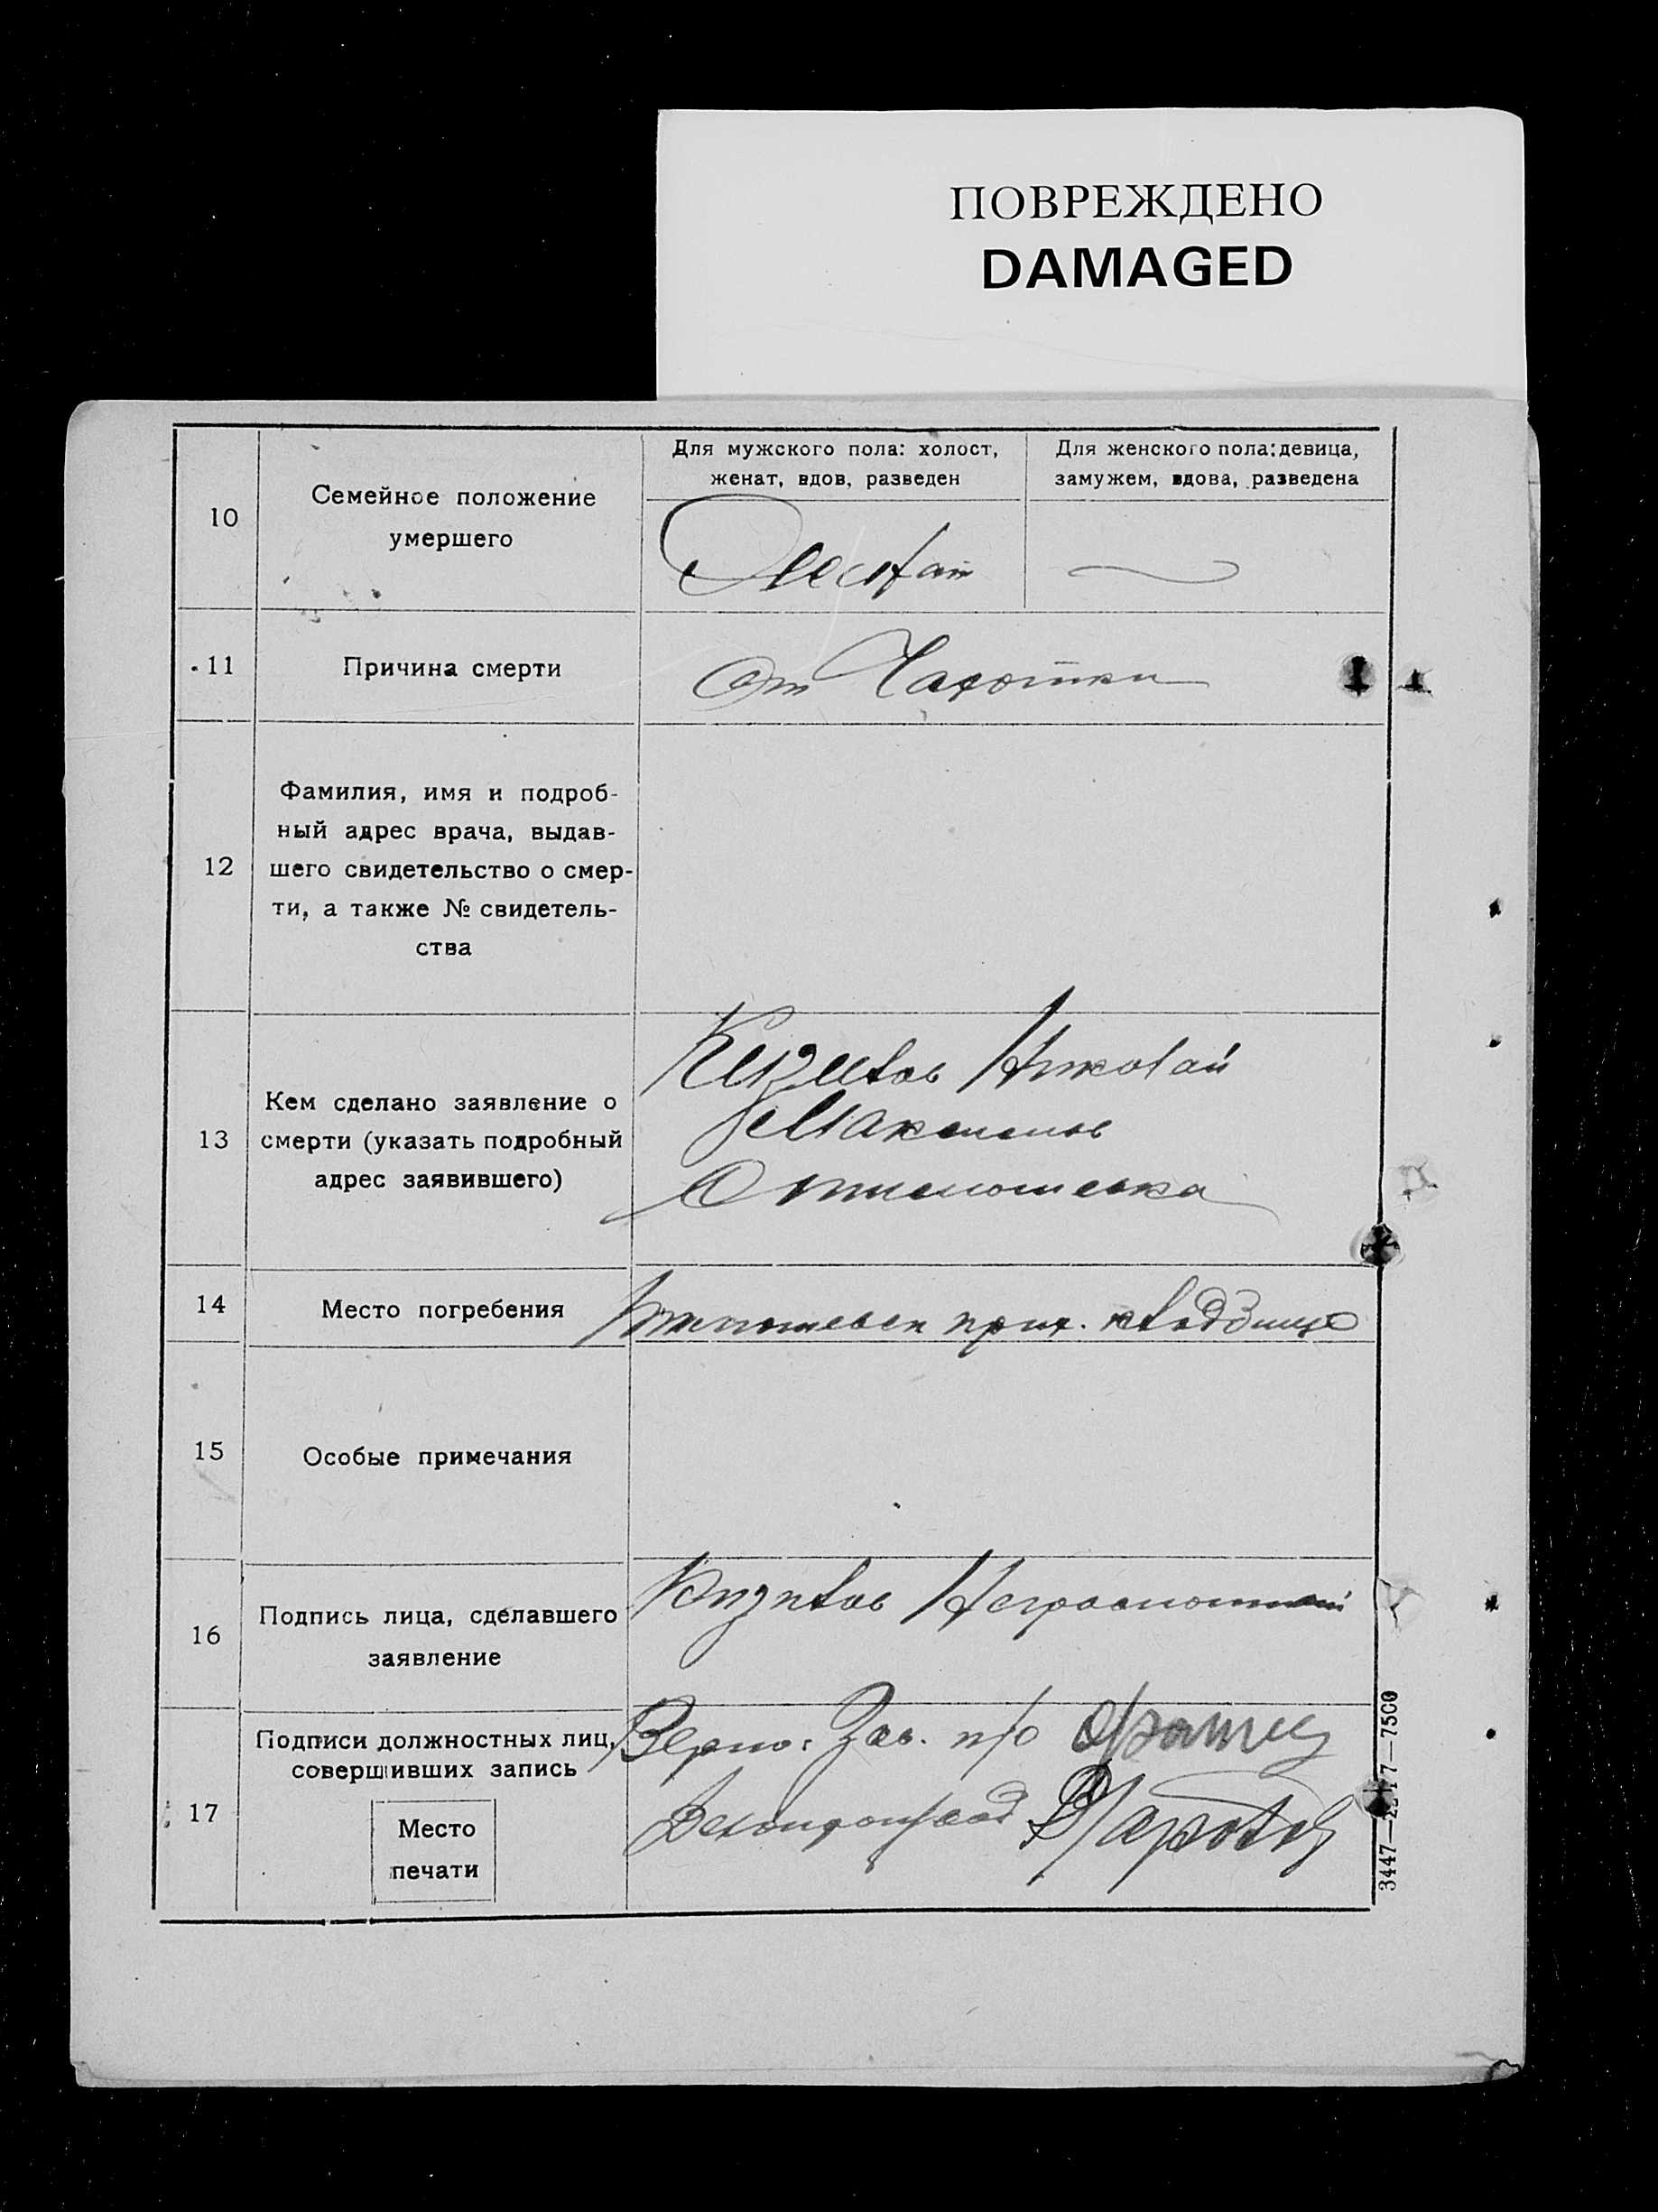 ПОВРЕЖДЕНО
DAMAGED
10
Семейное положение
умершего
Для мужского пола: холост,
женат, вдов, разведен
Для женского пола: девица,
замужем, вдова, разведена
11
Причина смерти
От Чахотки
12
Фамилия, имя и подроб-
ный адрес врача, выдав-
шего свидетельство о смер-
ти, а также № свидетель-
ства
13
Кем сделано заявление о
смерти (указать подробный
адрес заявившего)
Кизилов Николай
14
Место погребения
прих. кладбище
15
Особые примечания
16
Подпись лица, сделавшего
заявление
Кизилов Неграмотный
17
Подписи должностных лиц,
совершивших запись
Место
печати
Верно: Зав. п/о
Делопроизвод